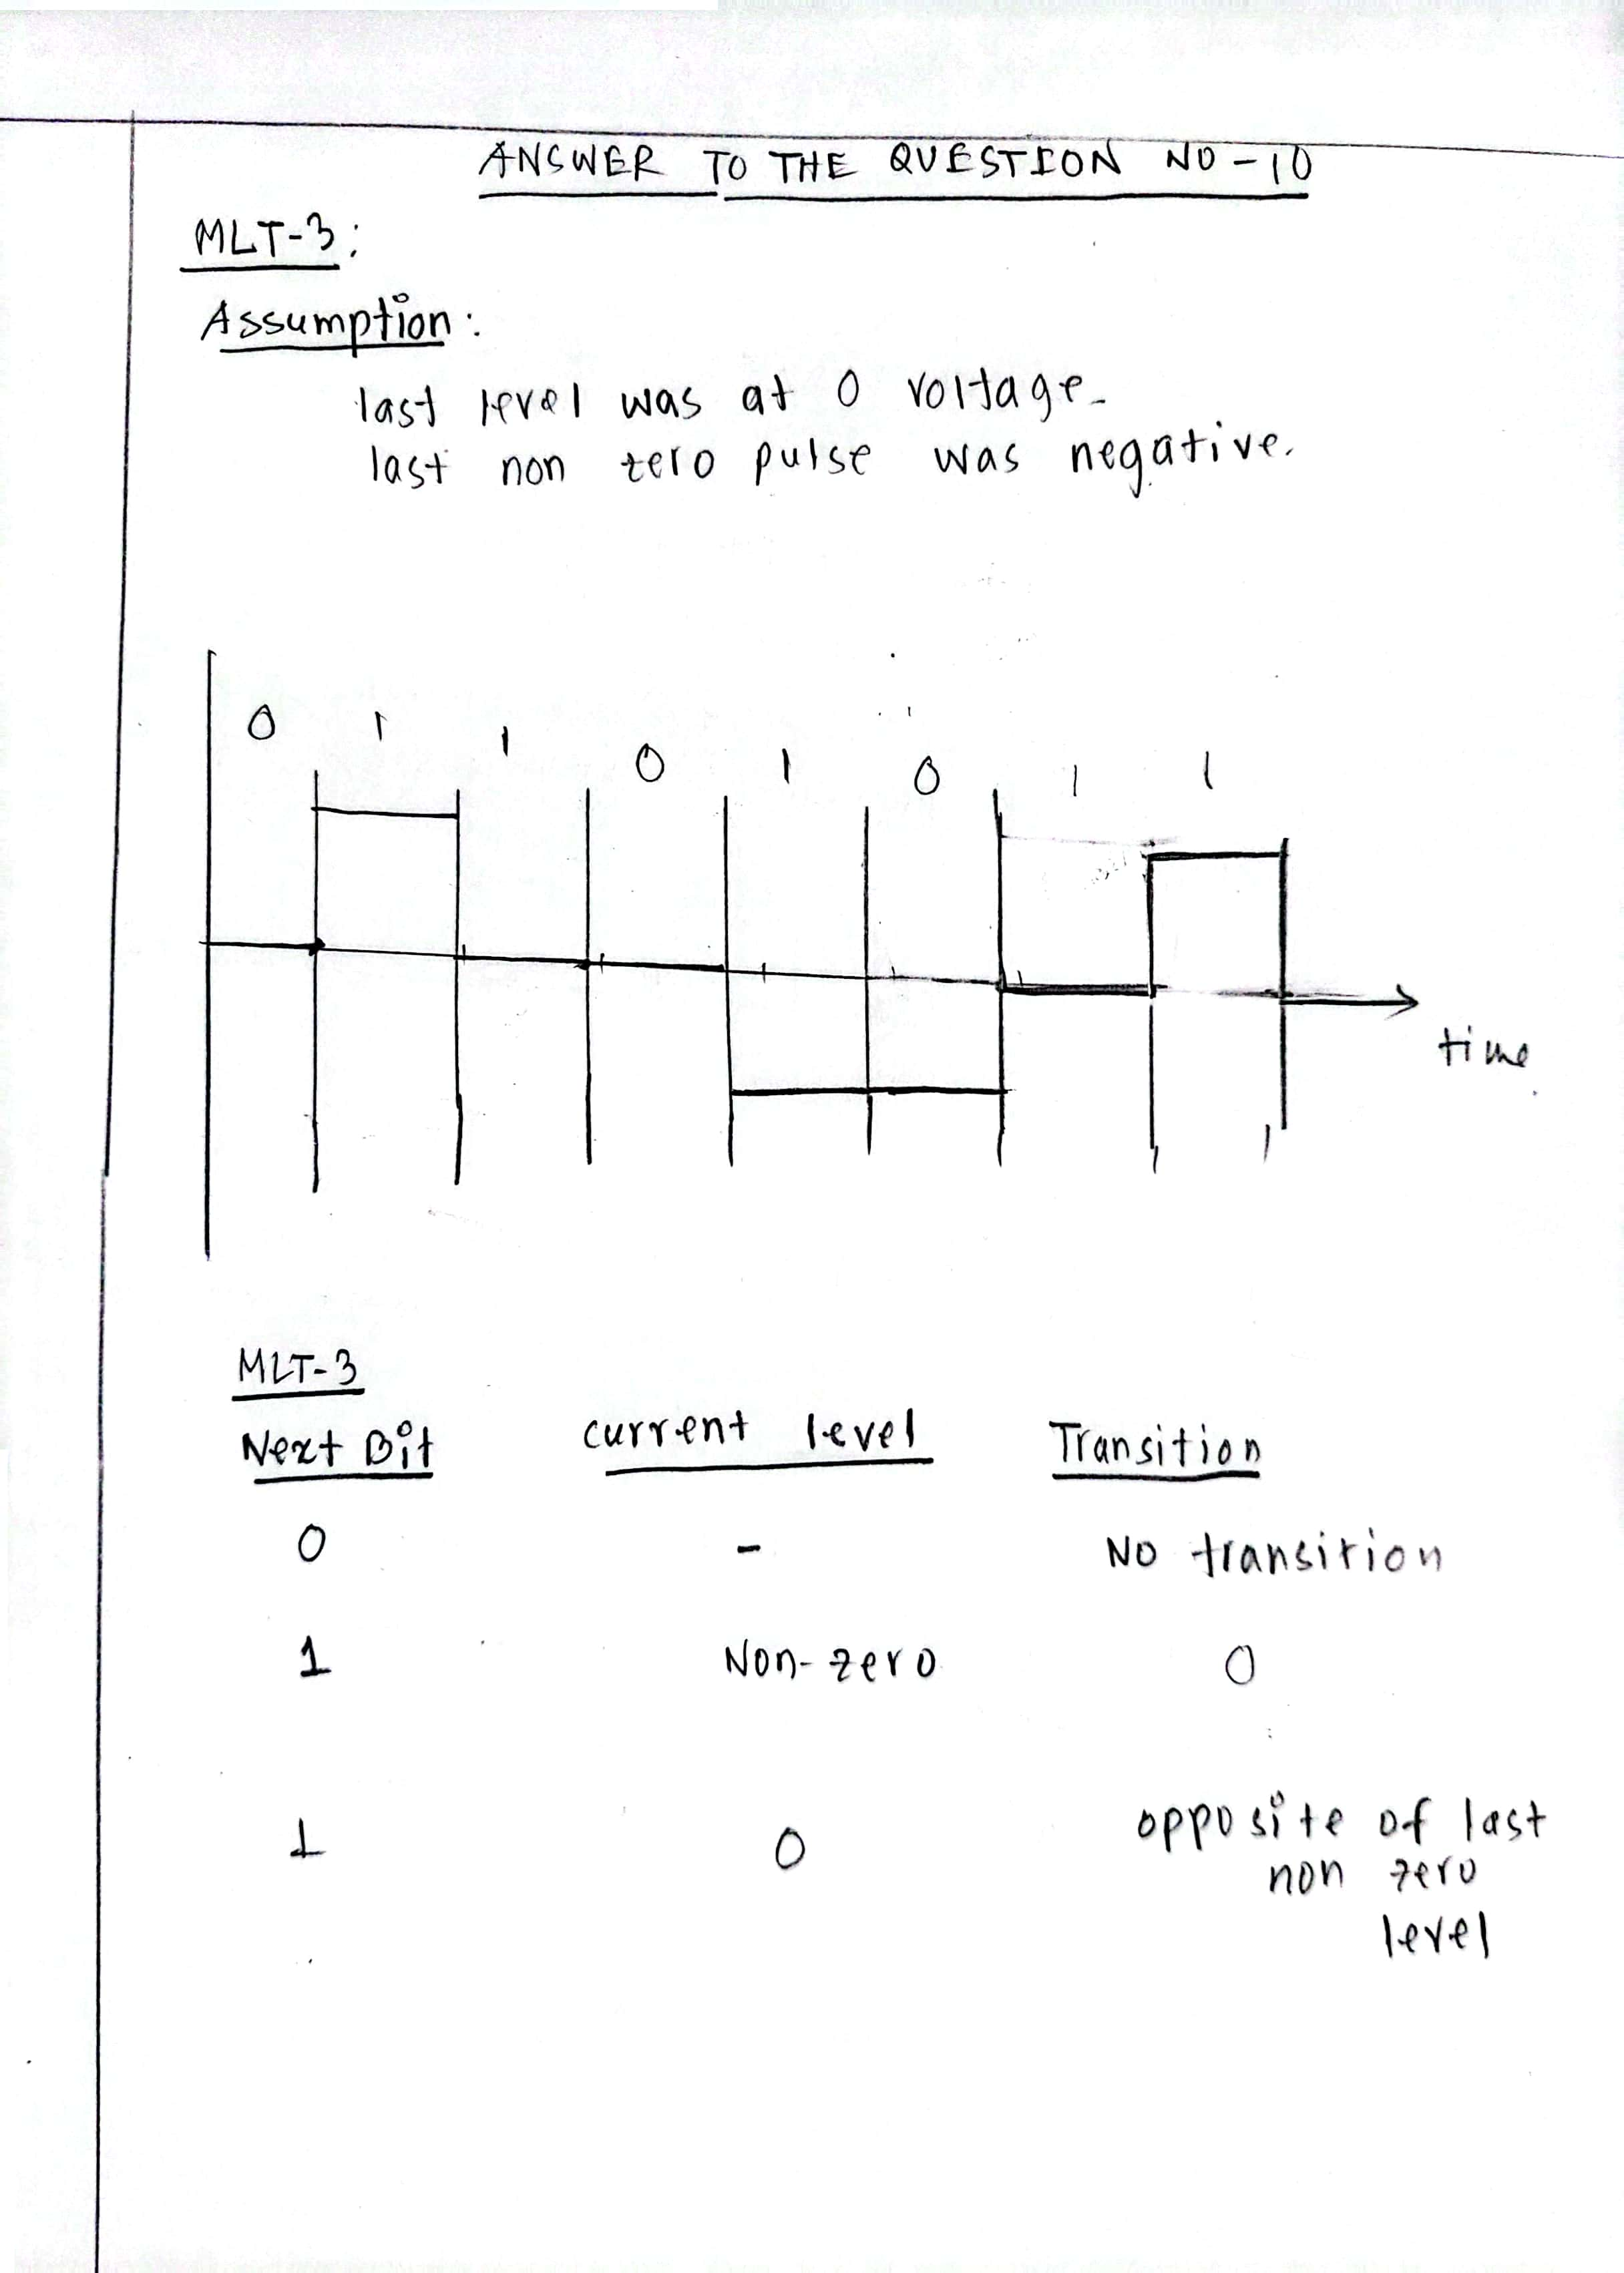 ANSWER TO THE QUESTION NO - 10
MLT-3:
Assumption:
last level was at 0 voltage.
last non zero pulse was negative.
0 1 1 0 1 0 1 1
time
MLT-3
Next Bit current level Transition
0 - No transition
1 Non-zero 0
1 0 opposite of last
non zero
level